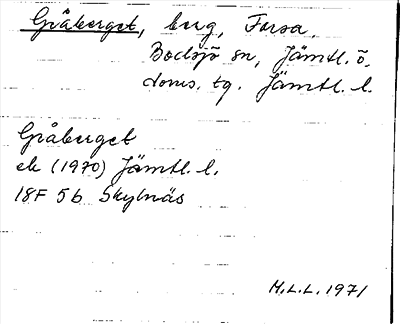 Gråberget, berg, Forsa,
Bodsjö sn, Jämtl. ö.
doms. tg. Jämtl. l.
Gråberget
ek (1970) Jämtl. l.
18F 5b Skylnäs
M.L.L. 1971